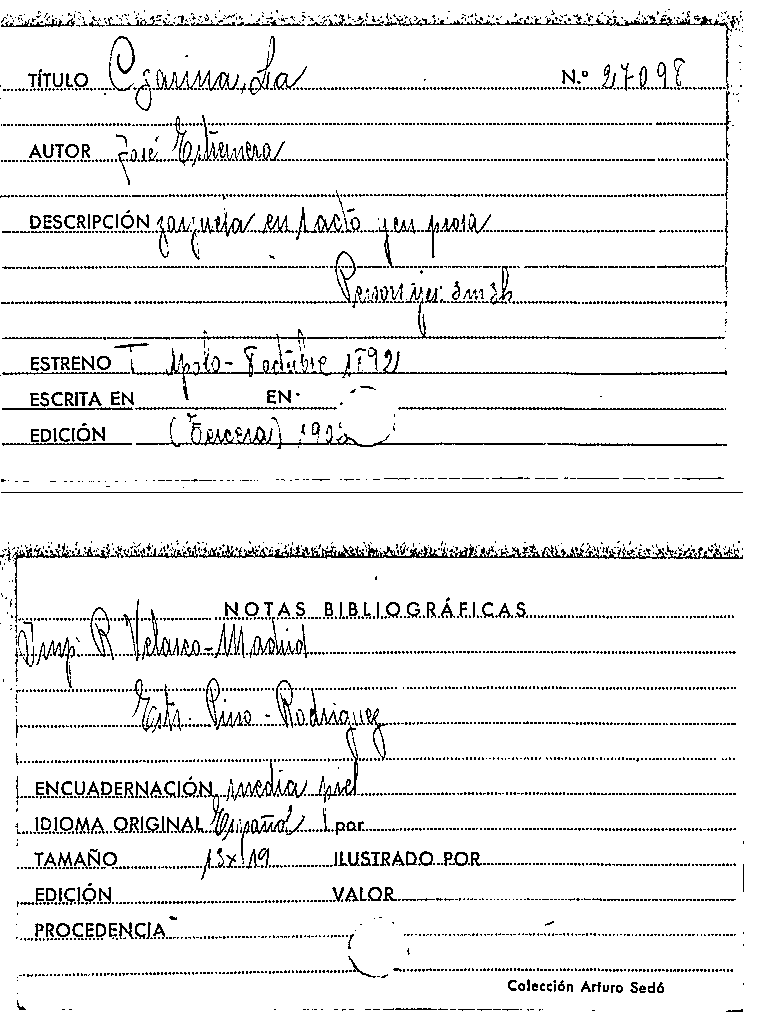 TÍTULO Czarina, La N.º 27098
AUTOR José Estremera
DESCRIPCIÓN zarzuela en 1 acto y en prosa
Personajes: 3m3h
ESTRENO T Apolo - 8 octubre 1892
ESCRITA EN EN
EDICIÓN (Tercera)
NOTAS BIBLIOGRÁFICAS
Imp: R Velasco - Madrid
Estr. Pino - Rodriguez
ENCUADERNACIÓN media piel
IDIOMA ORIGINAL Español por
TAMAÑO 13x19 ILUSTRADO POR
EDICIÓN VALOR
PROCEDENCIA
Colección Arturo Sedó